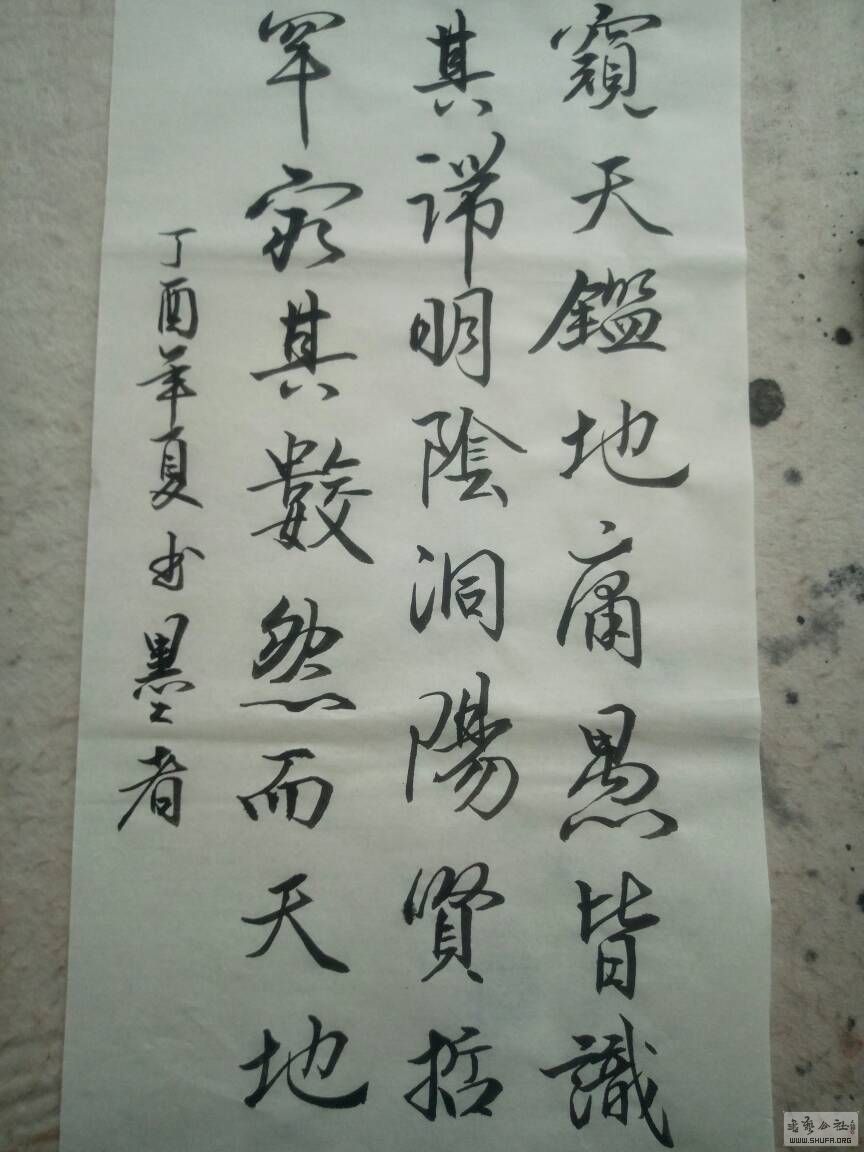 窺天鑑地庸愚皆識
其端明陰洞陽賢哲
罕窮其數然而天地
丁酉年夏書墨者
书艺公社
WWW.SHUFA.ORG